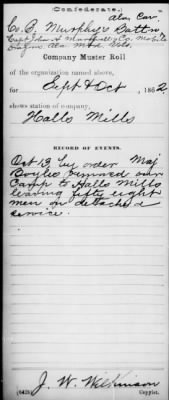 (Confederate.)
Ala. Cav.
Co. B, Murphy's Battn.
Capt John Marshall's Co. Mobile
Dragns. Ala. Mtd. Vols.
Company Muster Roll
of the organization named above,
for Sept & Oct, 1862,
shows station of company,
Halls Mills
RECORD OF EVENTS.
Oct 13 by order Maj
Boyles removed our
Camp to Halls Mills
leaving fifty eight
men on detached
service.
J. W. Wilkinson
(642) Copyist.